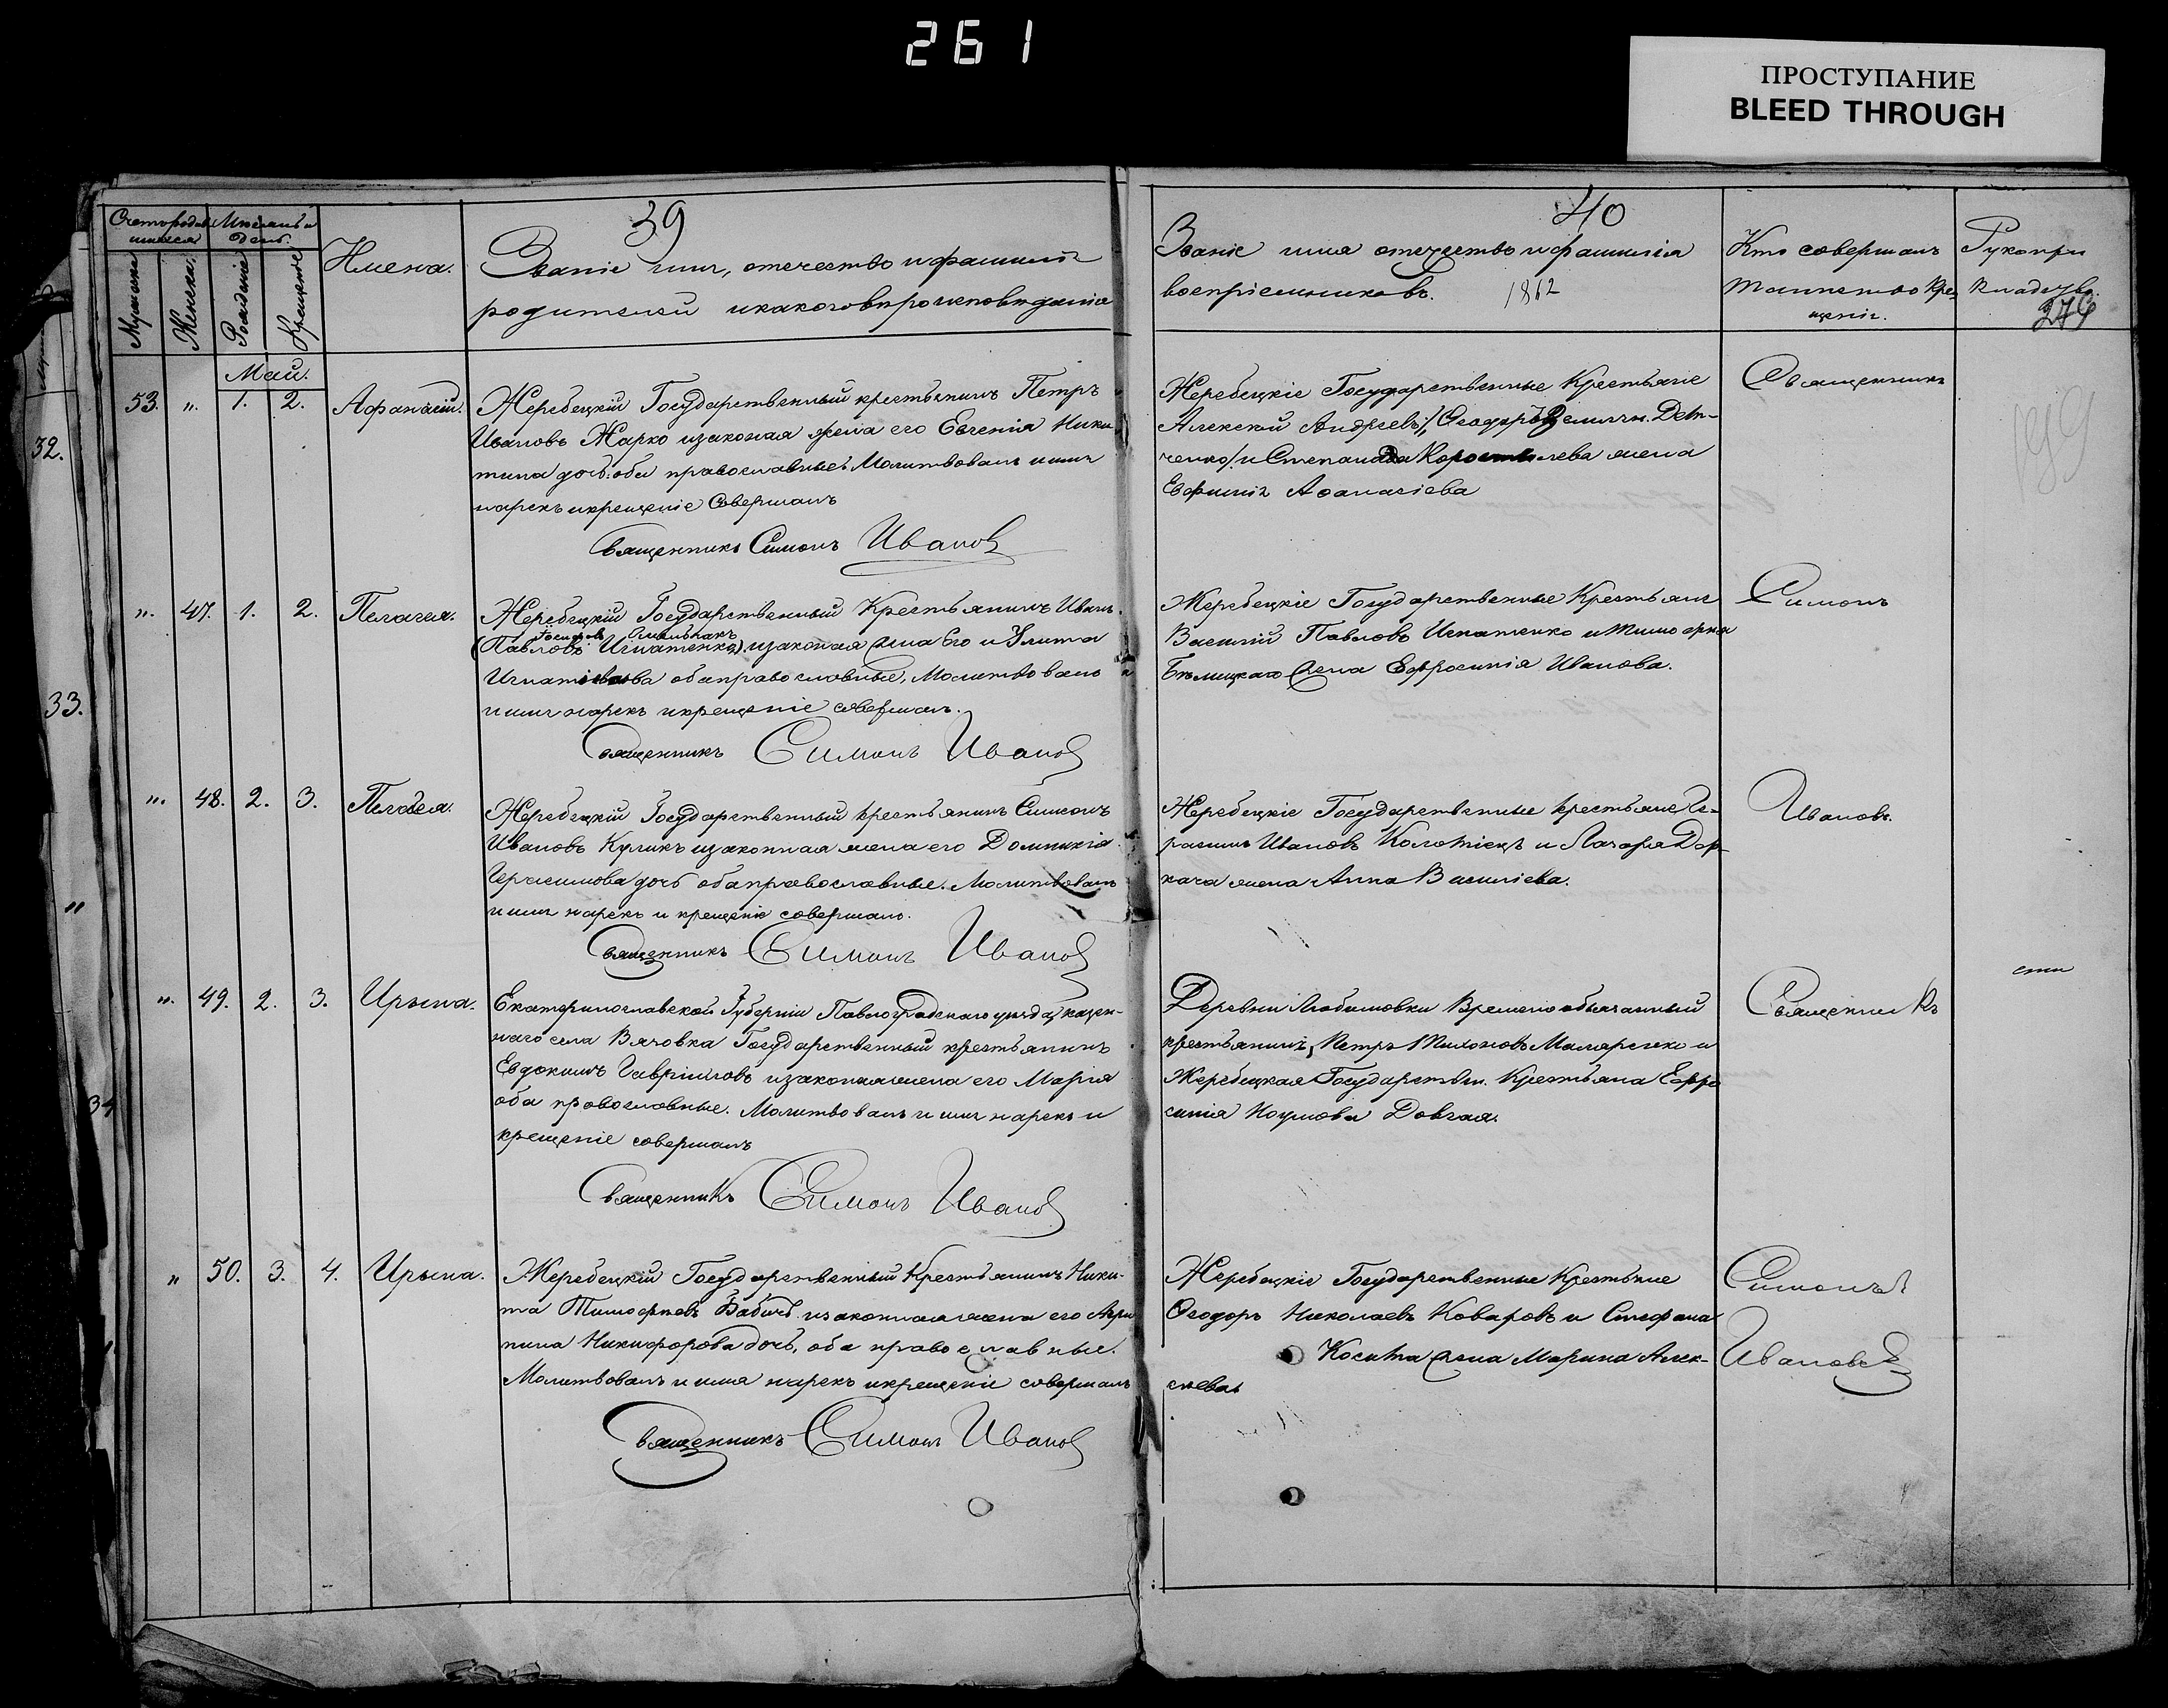 261
ПРОСТУПАНИЕ
BLEED THROUGH
39
Счетъ родив
шихся
Мѣсяцъ и
день.
Мужеска
Женска.
Рожденіе
Крещеніе
Имена.
Званіе имя, отечество и фамилія
родителей и какого вѣроисповѣданія
40
Званіе имя отечество и фамилія
воспріемниковъ. 1862
Кто совершалъ
таинство кре
щенія.
Рукопри
кладству
279
199
Май.
53. ". 1. 2. Афанасій.
Жеребецкій Государственный крестьянинъ Петръ
Ивановъ Жарко и законая жена его Евгенія Ники
тина дочь оба православные. Молитвовалъ имя
нарекъ и крещеніе совершалъ
Священникъ Симонъ Ивановъ
Жеребецкіе Государственные Крестьяне
Алексѣй Андреевъ / Ѳеодоръ
ченко / и Степана Коростелева жена
Евфимія Аѳанасіева
Священникъ
32.
". 47. 1. 2. Пелагея.
Жеребецкій Государственный Крестьянинъ Иванъ
Іосифовъ
(Павловъ Игнатенко) и законая жена Его Улита
Игнатіева оба православные, Молитвовалъ
имя нарекъ и крещеніе совершалъ.
Священникъ Симонъ Ивановъ
Жеребецкіе Государственные Крестьяне
Василій Павловъ Игнатенко и Тимофея
Бѣлицкаго жена Ефросинія Иванова.
Симонъ
33.
". 48. 2. 3. Пелагея.
Жеребецкій Государственный крестьянинъ Симеонъ
Ивановъ Куликъ и законная жена его Домникія
Герасимова дочь оба православные. Молитвовалъ
имя нарекъ и крещеніе совершалъ.
Священникъ Симонъ Ивановъ
Жеребецкіе Государственные крестьяне Ге-
расимъ Ивановъ Колотіецъ и Лазаря Дер-
кача жена Анна Василіева.
Ивановъ.
"
". 49. 2. 3. Ирына.
Екатеринославской Губерніи Павлоградскаго уѣзда, казен-
наго села Вязовка Государственный крестьянинъ
Евдокимъ Гавріиловъ и законная жена его Марія
оба православные. Молитвовалъ имя нарекъ и
крещеніе совершалъ
Священникъ Симонъ Ивановъ
Деревни Любимовки Временообязанный
крестьянинъ, Петръ Тихоновъ Маляренко и
Жеребецкая Государствен. Крестьяна Ефро
синія Наумова Довгая.
Священникъ
сти
34
" 50. 3. 4. Ирына.
Жеребецкій Государственный Крестьянинъ Ники-
та Тимофѣевъ Бабичъ и законная жена его Агри
пина Никифорова дочь, оба православные.
Молитвовалъ и имя нарекъ и крещеніе совершалъ
Священникъ Симонъ Ивановъ
Жеребецкіе Государственные Крестьяне
Ѳеодоръ Николаевъ Коваровъ и Стефана
Косита жена Марина Алек-
сѣева
Симонъ
Ивановъ